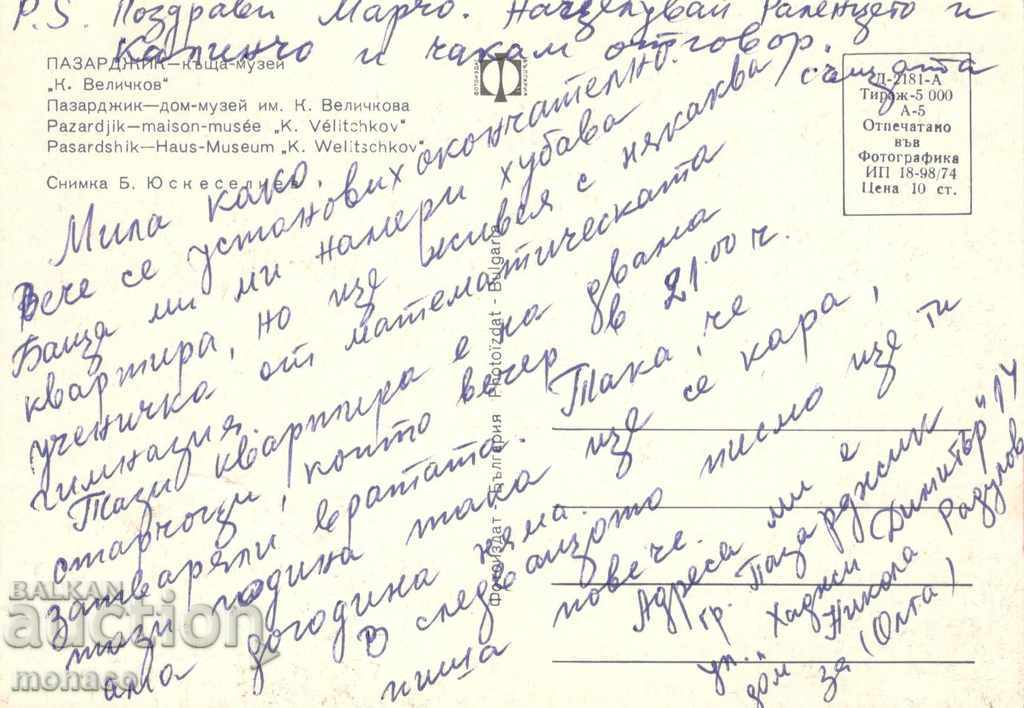 P.S Поздрави Марчо. Нацелувай Раленцето и
Калинчо и чакам отговор.
същата
ПАЗАРДЖИК—къща-музей
„К. Величков“
Пазарджик—дом-музей им. К. Величкова
Pazardjik—maison-musée „K. Vélitchkov“
Pasardshik—Haus-Museum „K. Welitschkov“
Снимка Б. Юскеселиев
ФОТОИЗДАТ
Д-2181-А
Тираж-5 000
А-5
Отпечатано
във
Фотографика
ИП 18-98/74
Цена 10 ст.
Мила како.
Вече се установих окончателно.
Баща ми ми намери хубава
квартира, но ще живея с някаква
ученичка от математическата
гимназия.
Тази квартира е на двама
старчоци, които вечер в 21.00 ч.
затварят вратата. Така, че
тази година така ще се кара,
ама догодина няма.
В следващото писмо ще ти
пиша повече.
Адреса ми е
гр. Пазарджик
ул. „Хаджи Димитър“ 14
дом Никола Радулов
за (Олга)
Фотоиздат - България Photoizdat - Bulgaria
BALKAN
auction
mohaso